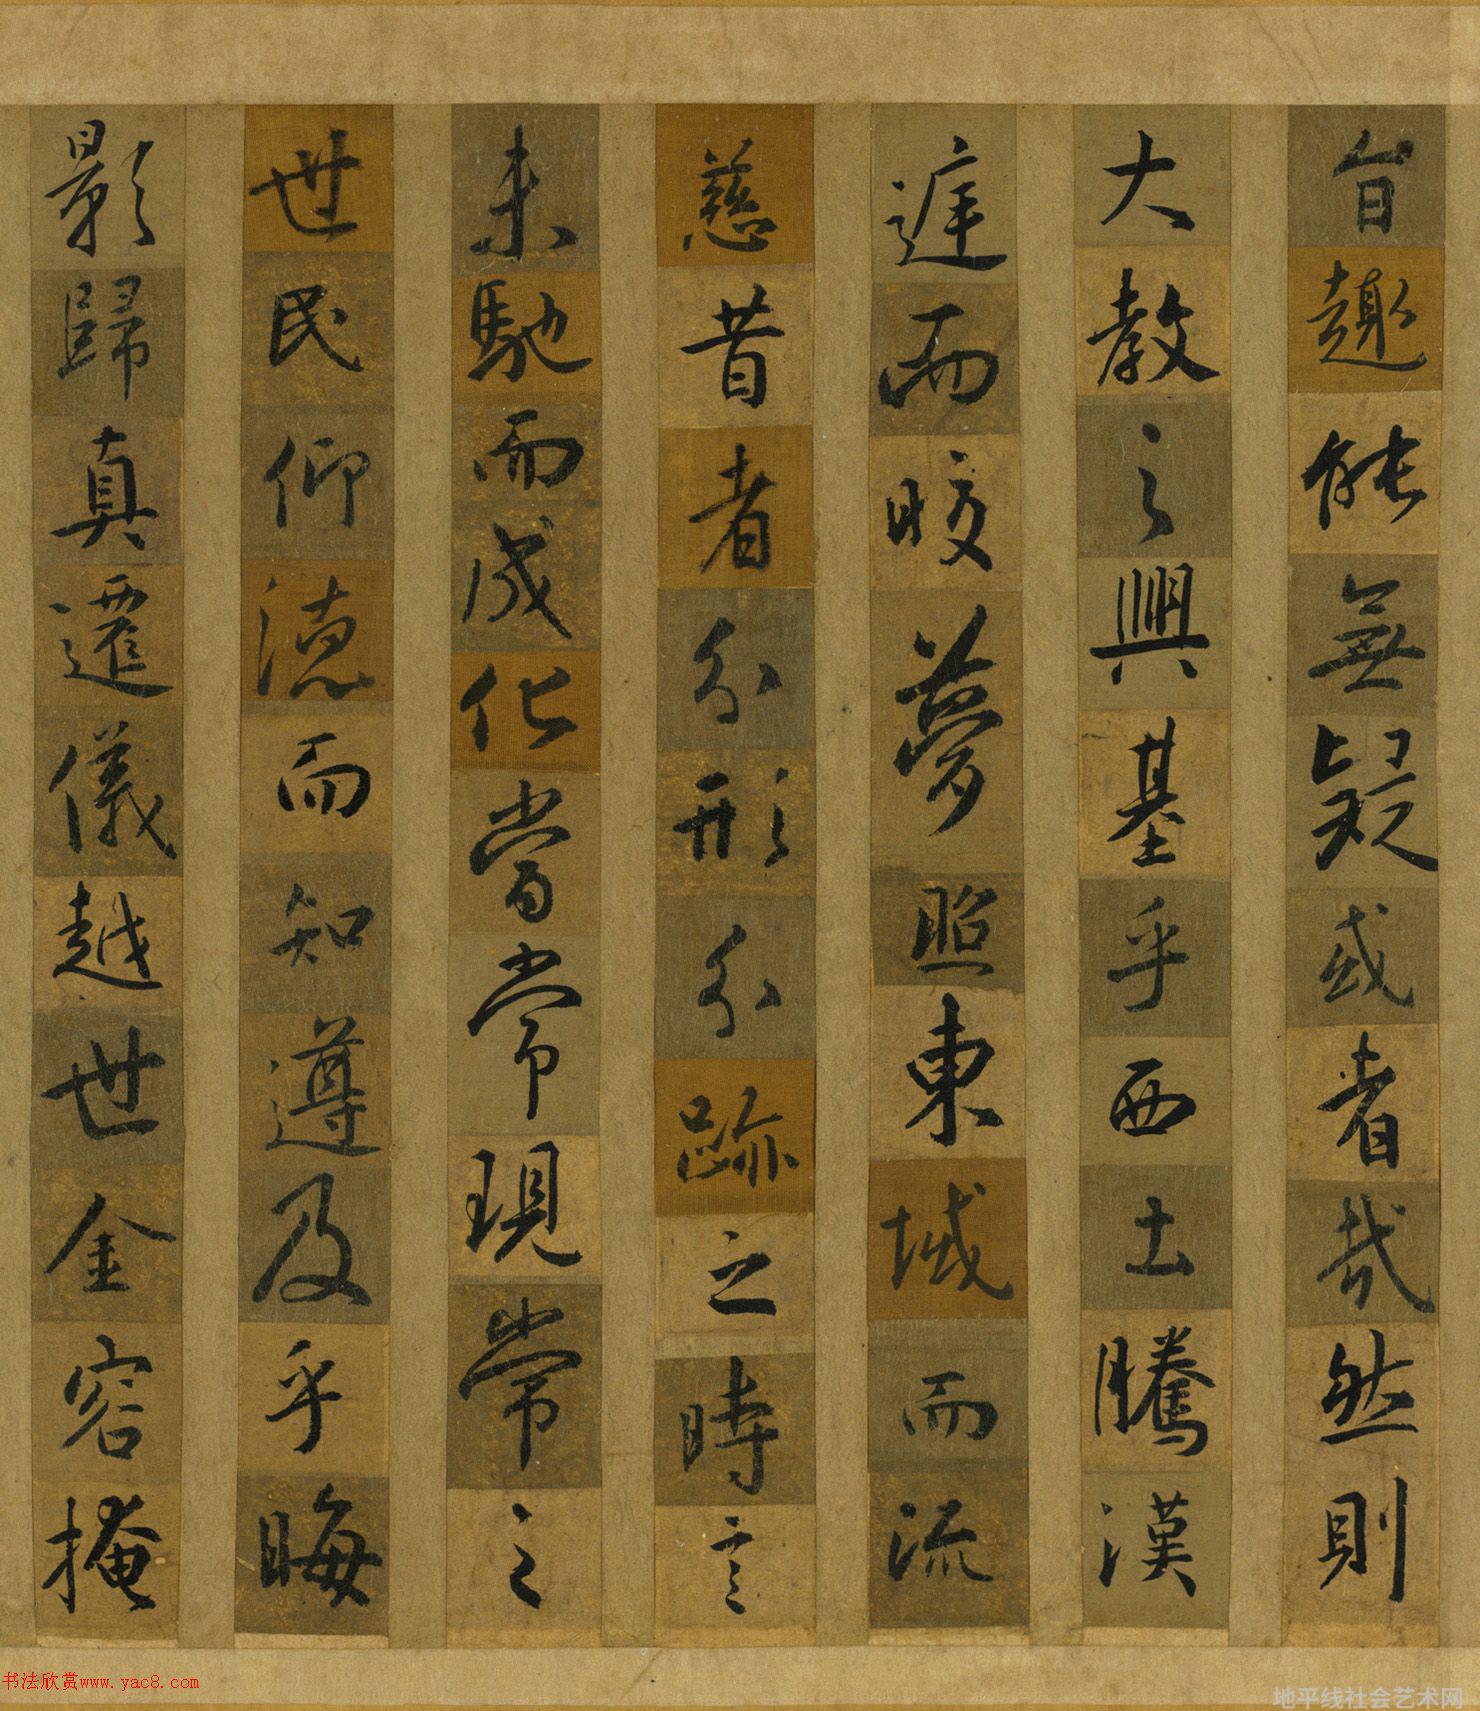 旨趣能無疑或者哉然則
大教之興基乎西土騰漢
遅而晈夢照東域而流
慈昔者分形分跡之時言
未馳而成化當常現常之
世民仰德而知遵及乎晦
影歸真遷儀越世金容掩
书法欣赏www.yac8.com
地平线社会艺术网